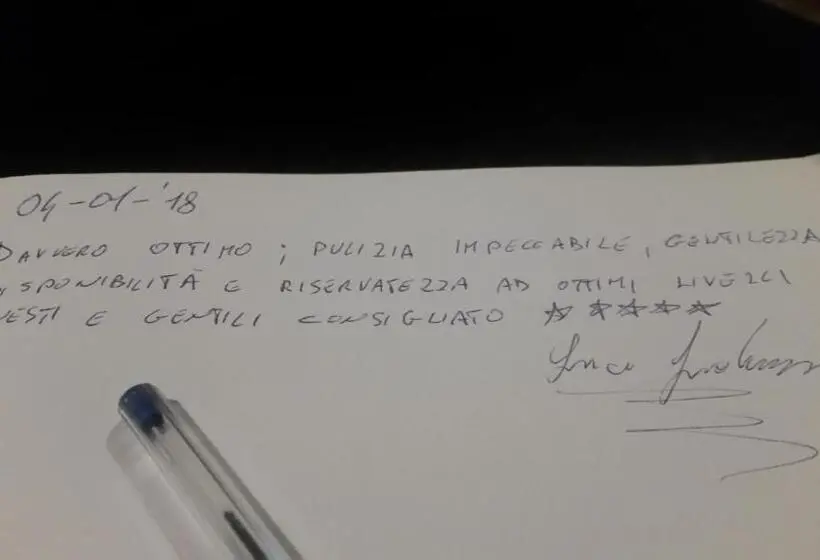 04-01-'18
DAVVERO OTTIMO ; PULIZIA IMPECCABILE, GENTILEZZA
SPONIBILITÀ E RISERVATEZZA AD OTTIMI LIVELLI
ESTI E GENTILI CONSIGLIATO ☆ ☆ ☆ ☆ ☆